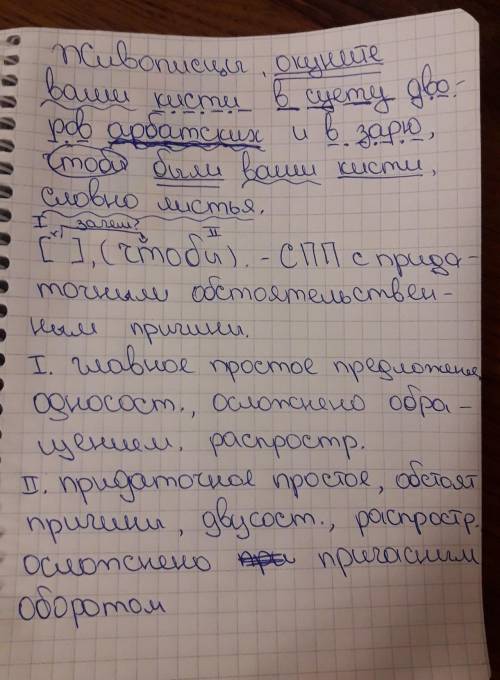 Живописцы, окуните
ваши кисти в суету дво-
ров арбатских и в зарю,
чтоби были ваши кисти,
словно листья.
I зачем? II
[ х ], (чтоби). - СПП с прида-
точным обстоятельствен-
ным причини.
I. главное простое предложение,
односост., осложнено обра-
щением. распростр.
II. придаточное простое, обстоят
причини, двусост., распростр.
осложнено причасним
оборотом